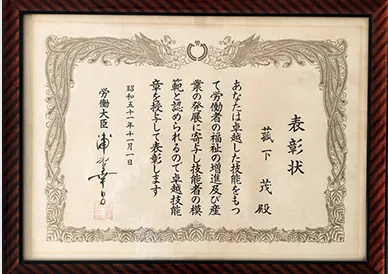 表彰状
菰下 茂 殿
あなたは卓越した技能をもつ
て労働者の福祉の増進及び産
業の発展に寄与し技能者の模
範と認められるので卓越技能
章を授与して表彰します
昭和五十一年十一月一日
労働大臣